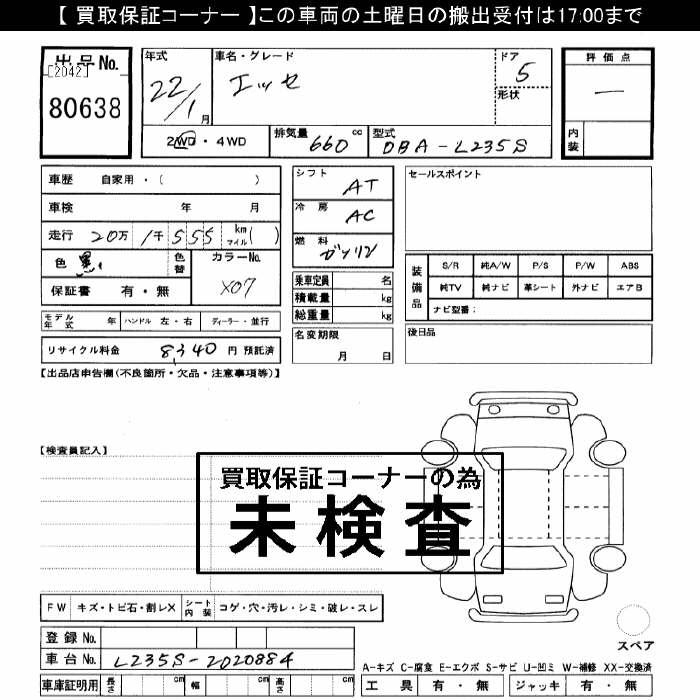 【 買取保証コーナー 】この車両の土曜日の搬出受付は17:00まで
出品No.
[2042]
80638
年式
22/1月
車名・グレード
エッセ
ドア
5
形状
評価点
―
内装
2WD・4WD
排気量 660 cc
型式 DBA-L235S
車歴 自家用・( )
車検 年 月
走行 20万 1千 555 km マイル( )
色 黒
色替
カラーNo.
X07
保証書 有・無
モデル年式 年
ハンドル 左・右
ディーラー・並行
リサイクル料金 8,340 円 預託済
シフト AT
冷房 AC
燃料 ガソリン
乗車定員 名
積載量 kg
総重量 kg
名変期限
月 日
セールスポイント
装備品
S/R 純A/W P/S P/W ABS
純TV 純ナビ 革シート 外ナビ エアB
ナビ型番：
後日品
【出品店申告欄(不良箇所・欠品・注意事項等)】
【検査員記入】
買取保証コーナーの為
未検査
FW キズ・トビ石・割レX
シート内装 コゲ・穴・汚レ・シミ・破レ・スレ
スペア
登録 No.
車台 No. L235S-2020884
車庫証明用 長さ cm 幅 cm 高さ cm
A-キズ C-腐食 E-エクボ S-サビ U-凹ミ W-補修 XX-交換済
工具 有・無 ジャッキ 有・無